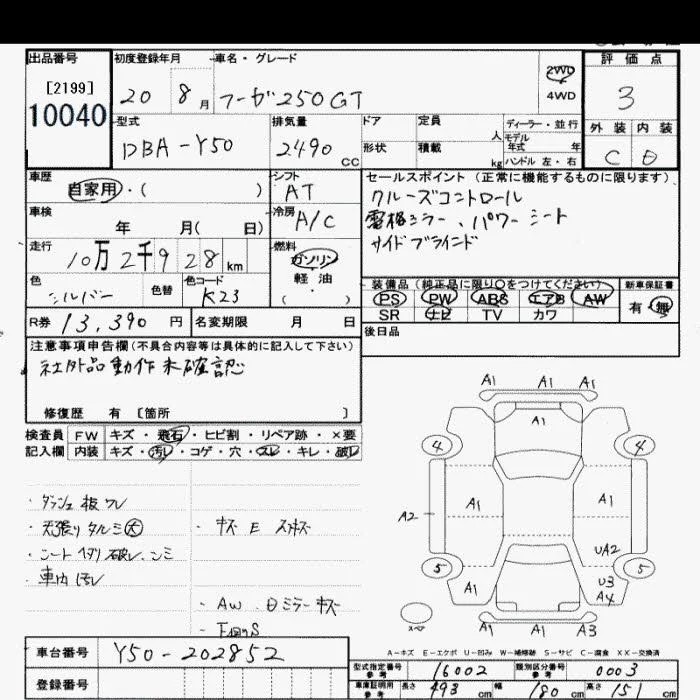 出品番号
[2199]
10040
初度登録年月
20 8月
車名・グレード
フーガ250GT
2WD
4WD
評価点
3
外装 内装
C D
型式
DBA-Y50
排気量
2490 cc
ドア
形状
定員 人
積載 kg
ディーラー・並行
モデル年式 年
ハンドル 左・右
車歴
自家用・( )
シフト
AT
セールスポイント(正常に機能するものに限ります)
クルーズコントロール
電格ミラー、パワーシート
サイドブラインド
車検
年 月( 日)
冷房
A/C
走行
10万2千9 28 km
燃料
ガソリン
軽・油
( ・ )
色
シルバー
色替
色コード
K23
装備品(純正品に限り○をつけてください)
PS PW ABS エアB AW
SR ナビ TV カワ
新車保証書
有 無
R券 13,390 円
名変期限 月 日
後日品
注意事項申告欄(不具合内容等は具体的に記入して下さい)
社外品動作未確認
修復歴 有 [箇所 ]
検査員
記入欄
FW キズ・飛石・ヒビ割・リペア跡・×要
内装 キズ・汚レ・コゲ・穴・スレ・キレ・破レ
・ダッシュ板ワレ
・天張りタルミ大
・シートヘタリ破レ、シミ
・車内汚レ
・キズ E スリキズ
・AW、Dミラーキズ
・下回りS
A1 A1 A1
A1
4 4
A1 A1
A2
UA2
5 5
A1
U3
A4
A1 A1 A3
スペア
A-キズ E-エクボ U-凹み W-補修跡 S-サビ C-腐食 XX-交換済
車台番号 Y50-202852
登録番号
型式指定番号 参考 16002
類別区分番号 参考 0003
車庫証明用 参考 長さ 493 cm 幅 180 cm 高さ 151 cm